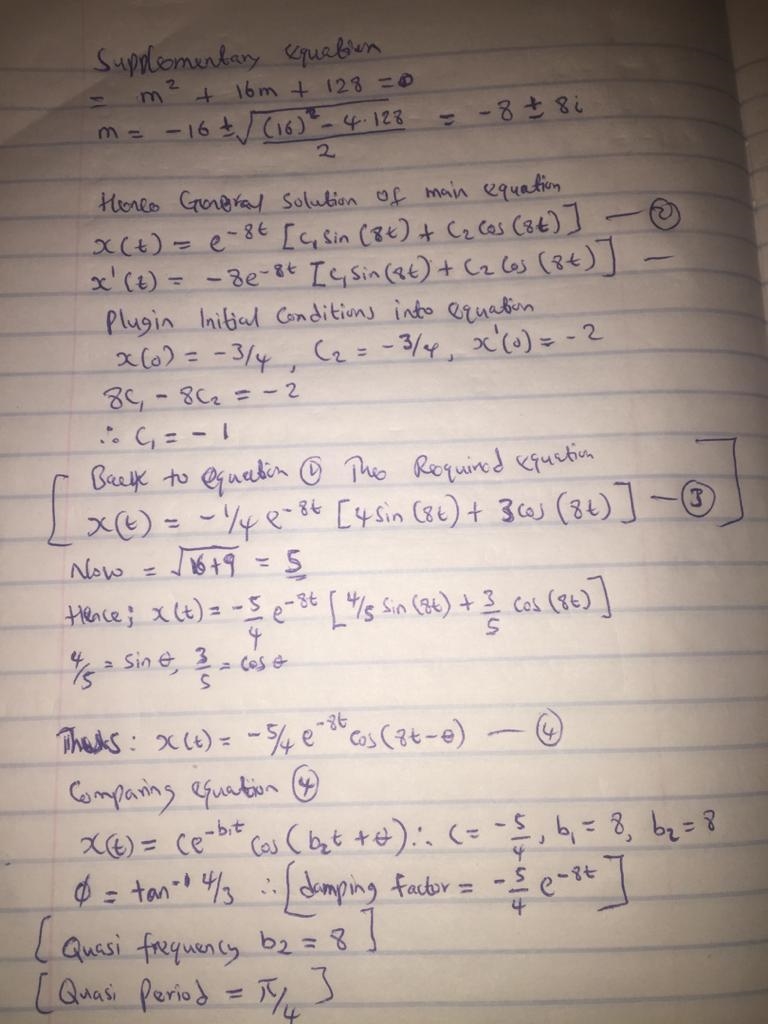 Supplementary equation
= m² + 16m + 128 = 0
m = -16 ± √(16)² - 4·128 / 2 = -8 ± 8i
Hence General Solution of main equation
x(t) = e^-8t [C₁ Sin (8t) + C₂ Cos (8t)] — ②
x'(t) = -8e^-8t [C₁ Sin(8t) + C₂ Cos (8t)] —
Plugin Initial Conditions into equation
x(0) = -3/4, C₂ = -3/4, x'(0) = -2
8C₁ - 8C₂ = -2
∴ C₁ = -1
[ Back to equation ① The Required equation
x(t) = -1/4 e^-8t [4 Sin (8t) + 3 cos (8t)] — ③ ]
Now = √16+9 = 5
Hence; x(t) = -5/4 e^-8t [4/5 Sin (8t) + 3/5 Cos (8t)]
4/5 = Sin θ, 3/5 = Cos θ
: x(t) = -5/4 e^-8t Cos (8t-θ) — ④
Comparing equation ④
x(t) = Ce^-b₁t Cos (b₂t + θ) ∴ C = -5/4, b₁ = 8, b₂ = 8
Ø = tan⁻¹ 4/3 ∴ [damping factor = -5/4 e^-8t]
[Quasi frequency b₂ = 8]
[Quasi Period = π/4]